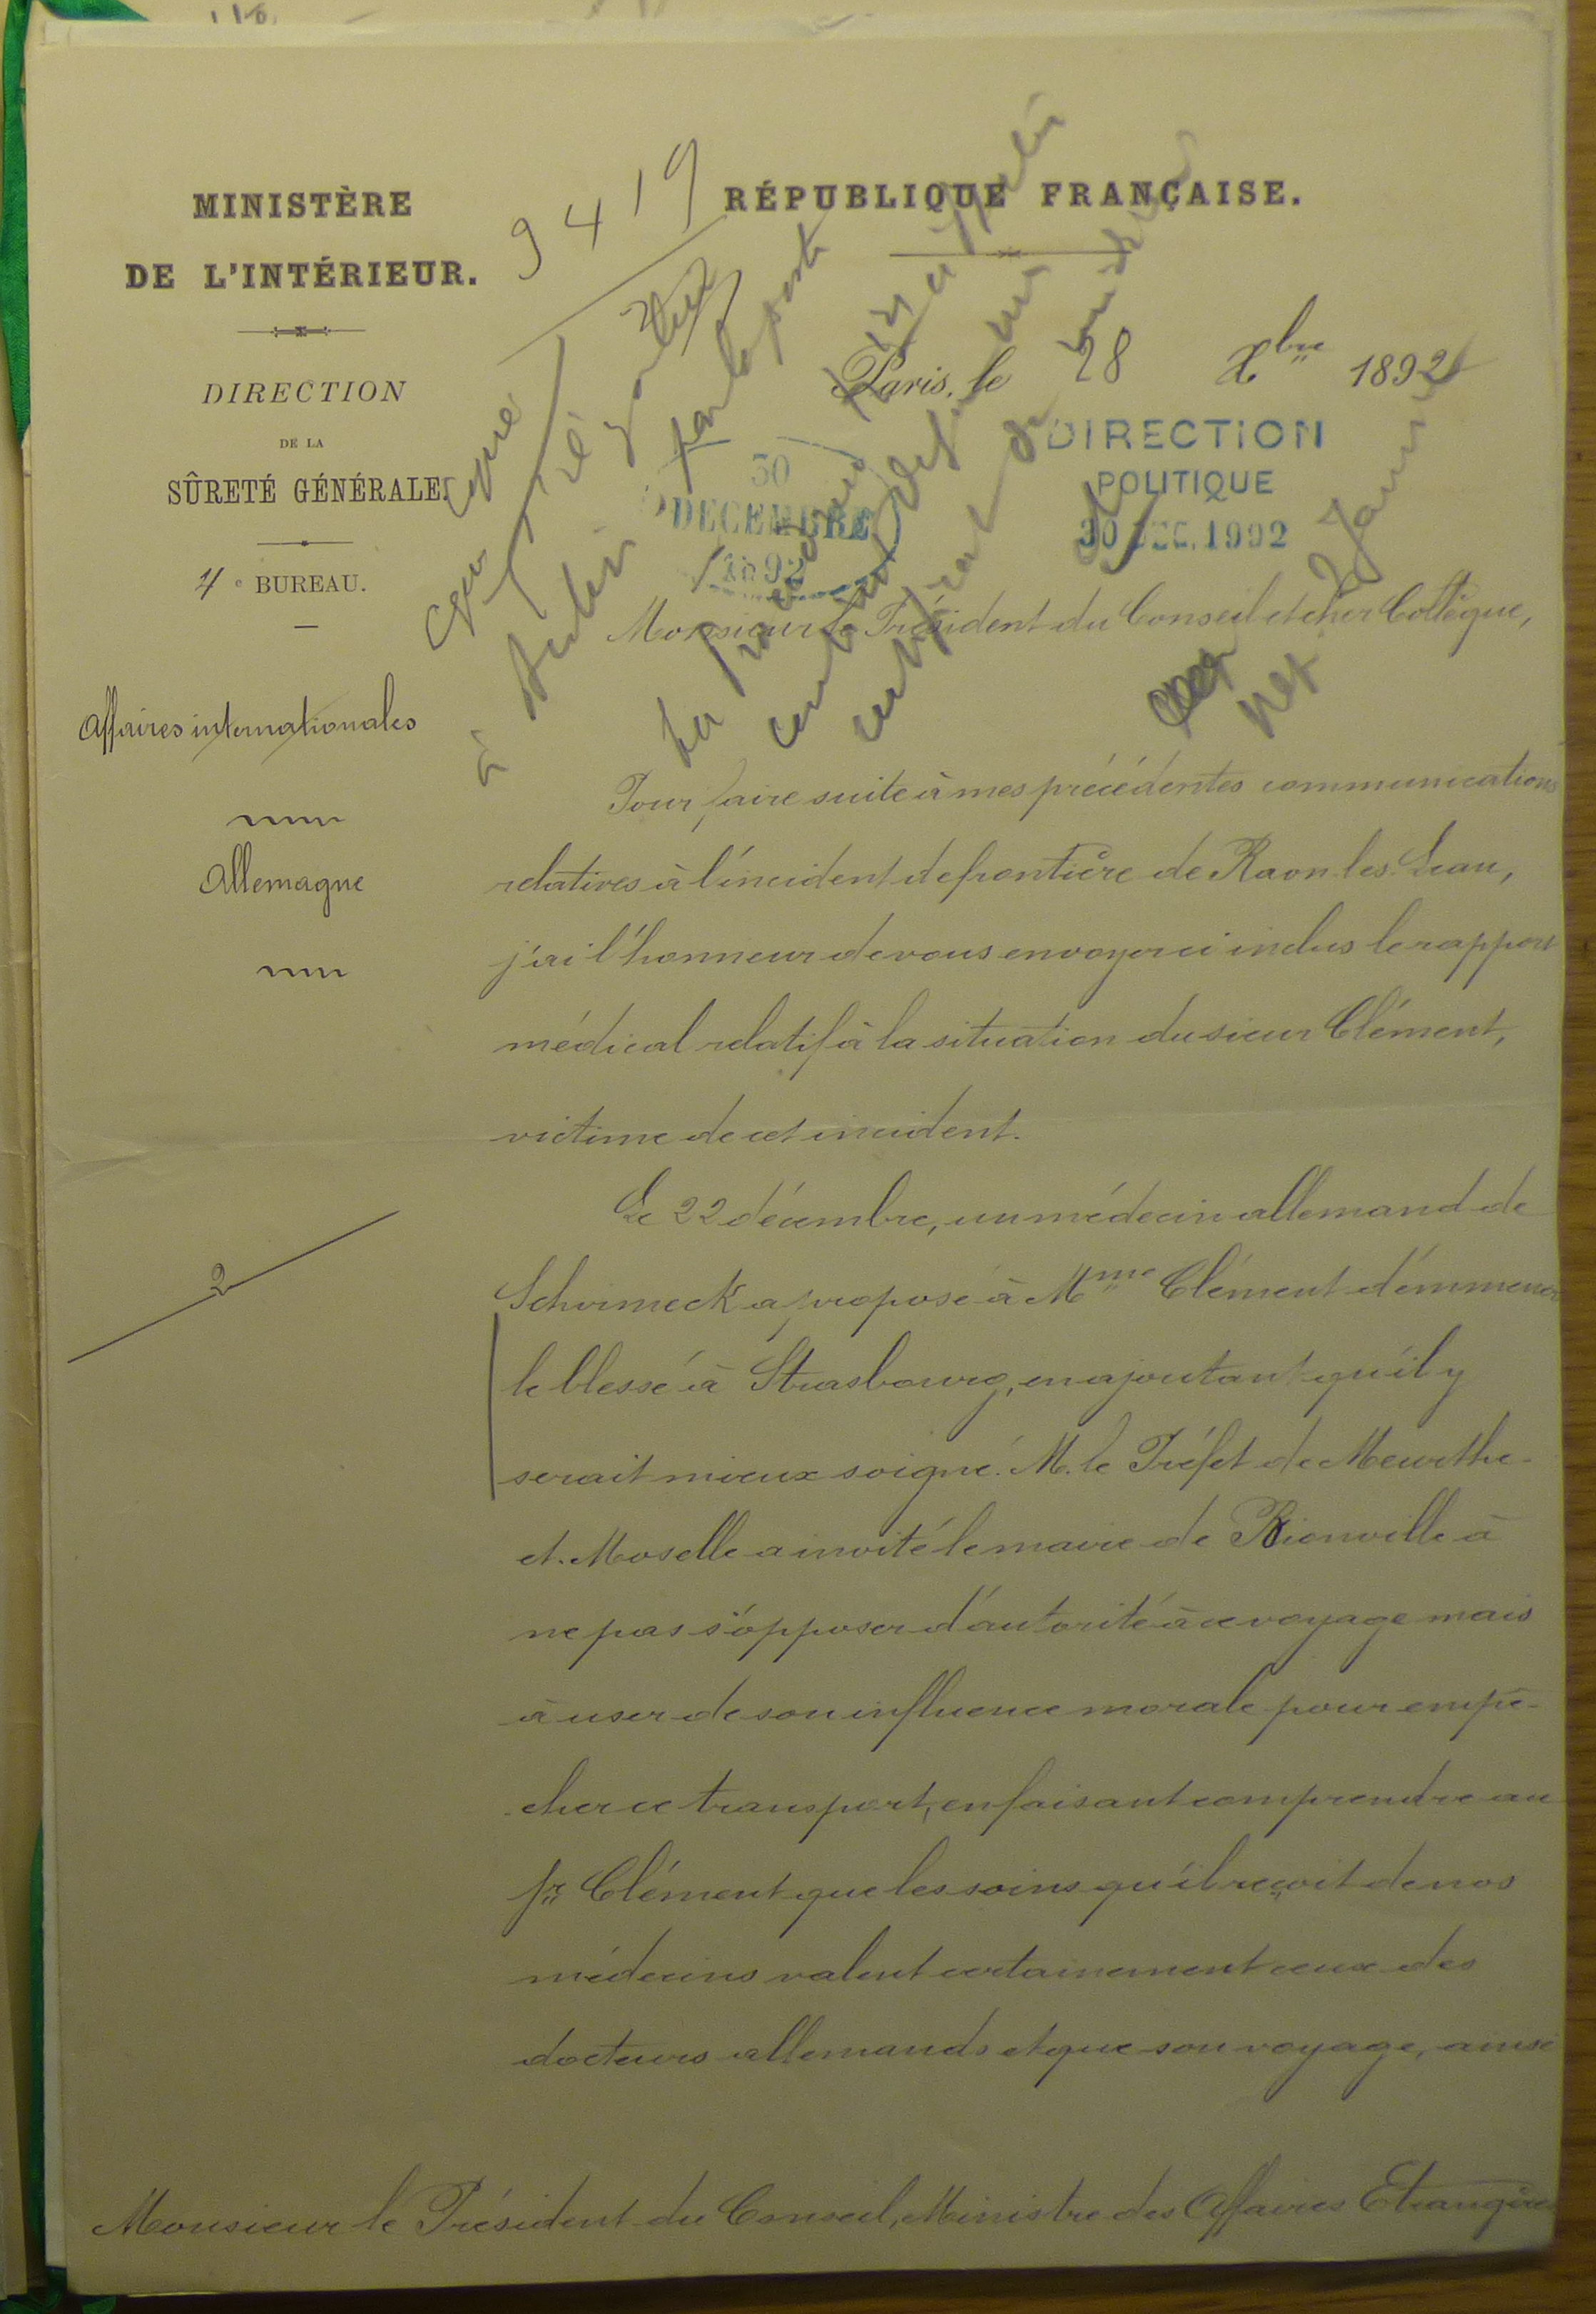 MINISTÈRE
DE L'INTÉRIEUR.
DIRECTION
DE LA
SÛRETÉ GÉNÉRALE
4e BUREAU.
Affaires internationales
Allemagne
2
9419
RÉPUBLIQUE FRANÇAISE.
Paris, le 28 Xbre 1892
DIRECTION
POLITIQUE
30 DEC. 1992
30
DECEMBRE
1892
copie
à Berlin par la poste
Janvier
Monsieur le Président du Conseil et cher Collègue,
Pour faire suite à mes précédentes communications
relatives à l'incident de frontière de Raon les Leau,
j'ai l'honneur de vous envoyer ci inclus le rapport
médical relatif à la situation du sieur Clément,
victime de cet incident.
Le 22 décembre, un médecin allemand de
Schirmeck a proposé à Mme Clément d'emmener
le blessé à Strasbourg, en ajoutant qu'il y
serait mieux soigné. M. le Préfet de Meurthe-
et-Moselle a invité le maire de Bionville à
ne pas s'opposer d'autorité à ce voyage mais
à user de son influence morale pour empê-
cher ce transport, en faisant comprendre au
Sr Clément que les soins qu'il reçoit de nos
médecins valent certainement ceux des
docteurs allemands et que son voyage, ainsi
Monsieur le Président du Conseil, Ministre des Affaires Etrangères